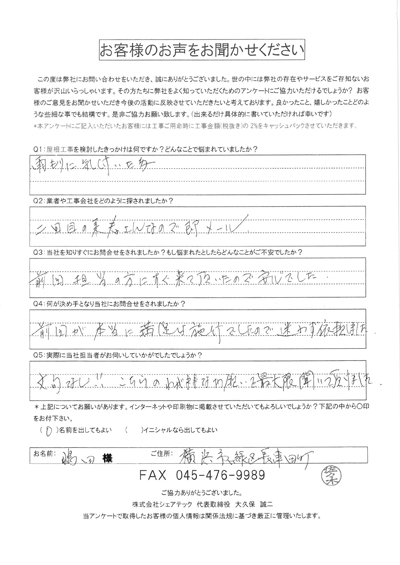 お客様のお声をお聞かせください
この度は弊社にお問い合わせをいただき、誠にありがとうございました。世の中には弊社の存在やサービスをご存知ないお
客様が沢山いらっしゃいます。その方たちに弊社をよく知っていただくためのアンケートにご協力いただけるでしょうか? お客
様のご意見をお聞かせいただき今後の活動に反映させていただきたいと考えております。良かったこと、嬉しかったことどのよ
うな些細な事でも結構です。是非ご協力お願い致します。(出来るだけ具体的に書いていただければ幸いです)
*本アンケートにご記入いただいたお客様には工事ご用命時に工事金額(税抜き)の2%をキャッシュバックさせていただきます。
Q1:屋根工事を検討したきっかけは何ですか?どんなことで悩まれていましたか?
雨もりに気付いた為
Q2:業者や工事会社をどのように探されましたか?
二回目の業者さんなので即メール
Q3:当社を知りすぐにお問合せをされましたか?もし悩まれたとしたらどんなことがご不安でしたか?
前回担当の方にすぐ来て頂いたので安心でした
Q4:何が決め手となり当社にお問合せをされましたか?
前回が本当に満足な施行でしたので迷わず依頼しました
Q5:実際に当社担当者がお伺いしていかがでしたでしょうか?
文句なし!! こちらの を最大限聞いて頂けました
*上記についてお願いがあります。インターネットや印刷物に掲載させていただいてもよろしいでしょうか?下記の中から○印
をお付け下さい。
(○)名前を出してもよい ( )イニシャルなら出してもよい
お名前: 嶋田 様 ご住所: 横浜市緑区長津田町
FAX 045-476-9989
ご協力ありがとうございました。
株式会社シェアテック 代表取締役 大久保 誠二
当アンケートで取得したお客様の個人情報は関係法規に基づき厳正に管理いたします。